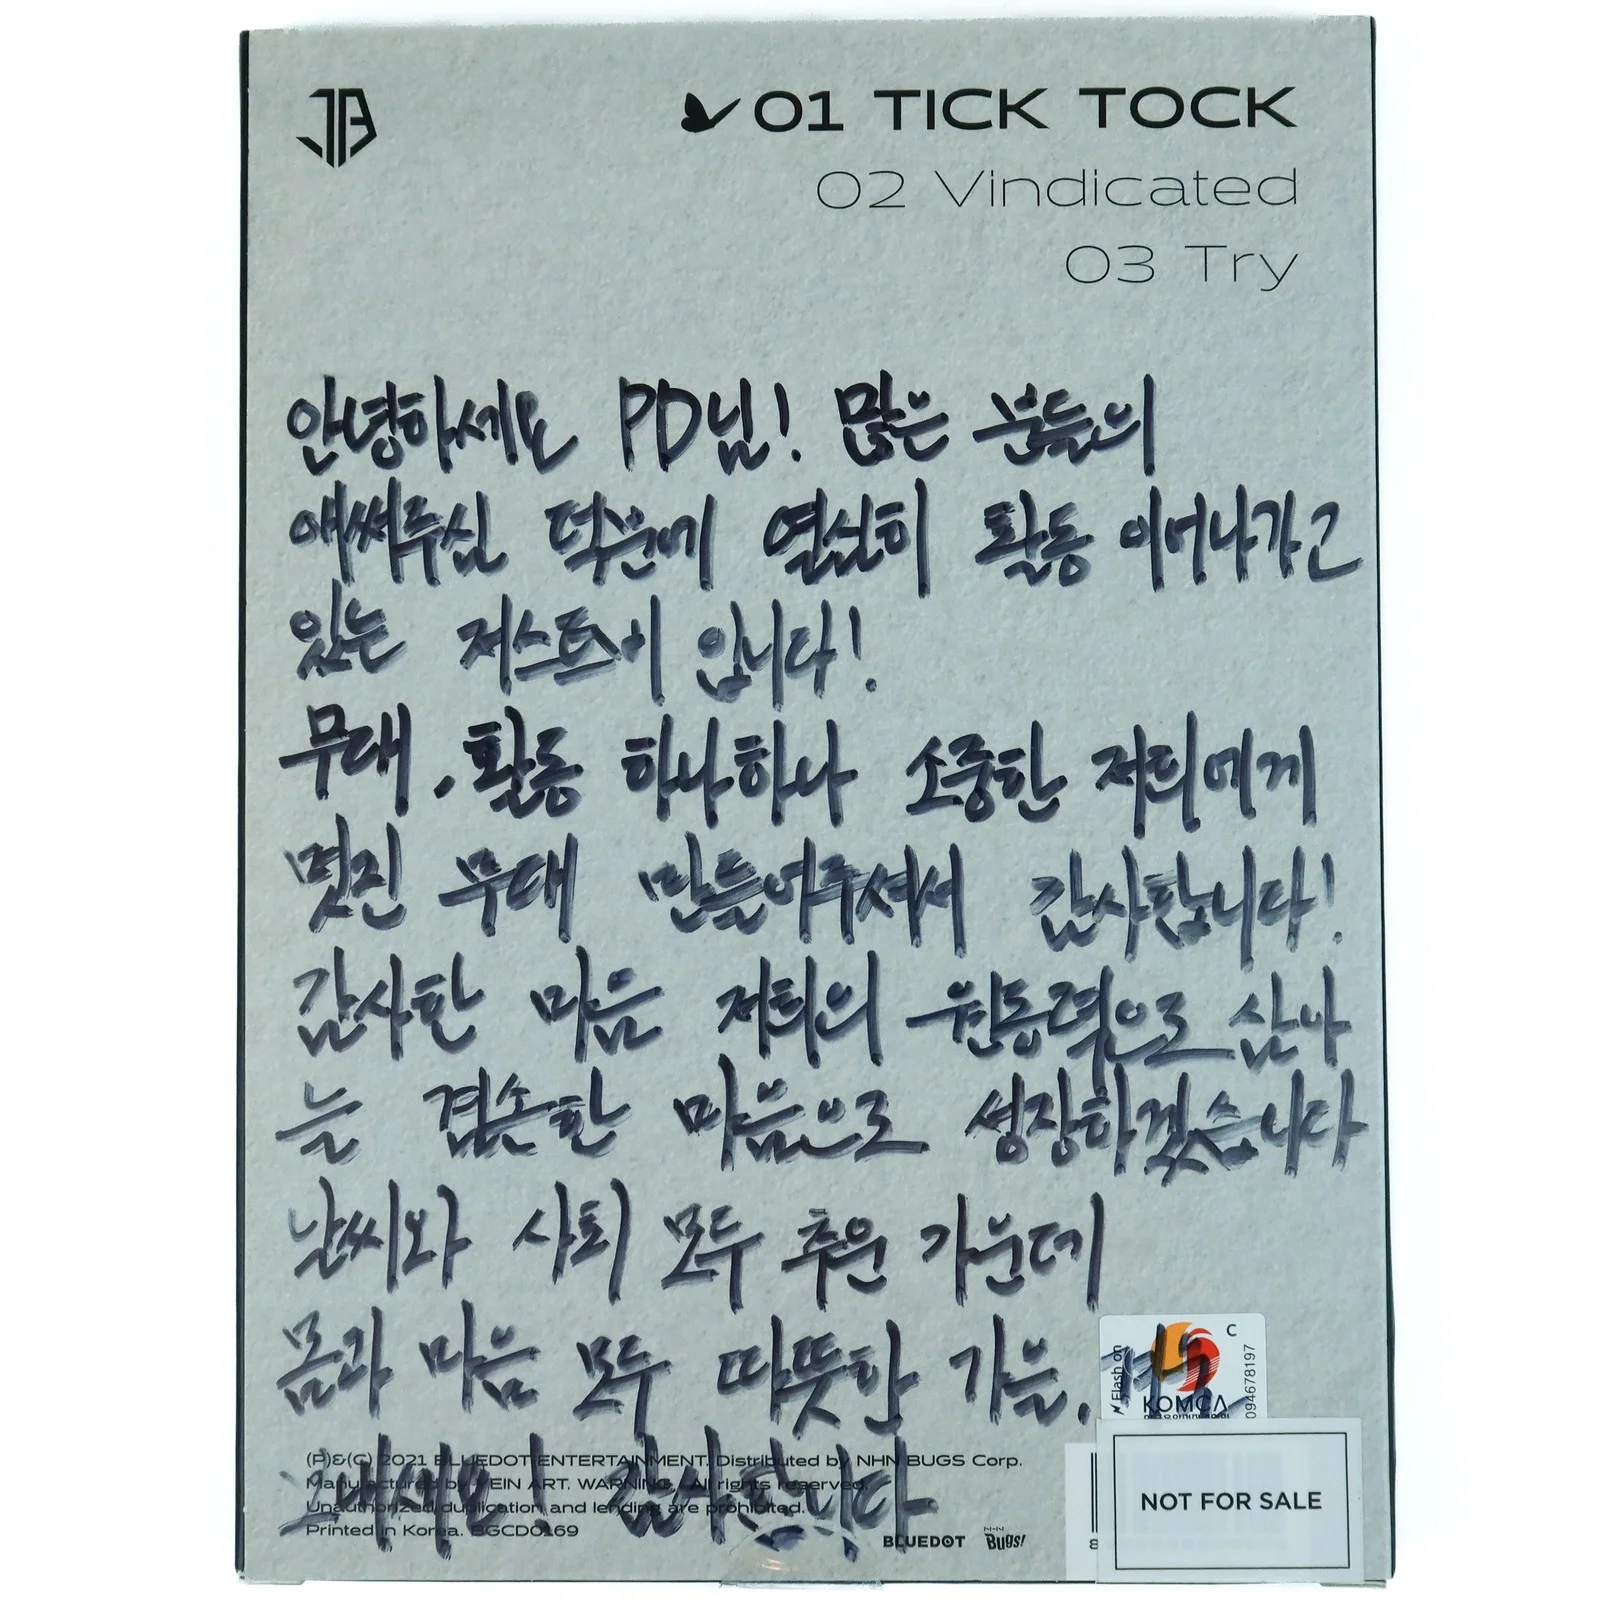 JB
01 TICK TOCK
02 Vindicated
03 Try
안녕하세요 PD님! 많은 분들의
애써주신 덕분에 열심히 활동 이어나가고
있는 저스트비 입니다!
무대, 활동 하나하나 소중한 저희에게
멋진 무대 만들어주셔서 감사합니다!
감사한 마음 저희의 원동력으로 삼아
늘 겸손한 마음으로 성장하겠습니다
날씨와 사회 모두 추운 가운데
몸과 마음 모두 따뜻한 가을,
보내세요! 감사합니다
Flash on
C
KOMCA
094678197
(P)&(C) 2021 BLUEDOT ENTERTAINMENT. Distributed by NHN BUGS Corp.
Manufactured by JEIN ART. WARNING. All rights reserved.
Unauthorized duplication and lending are prohibited.
Printed in Korea. BGCD0169
BLUEDOT NHN Bugs!
8
NOT FOR SALE